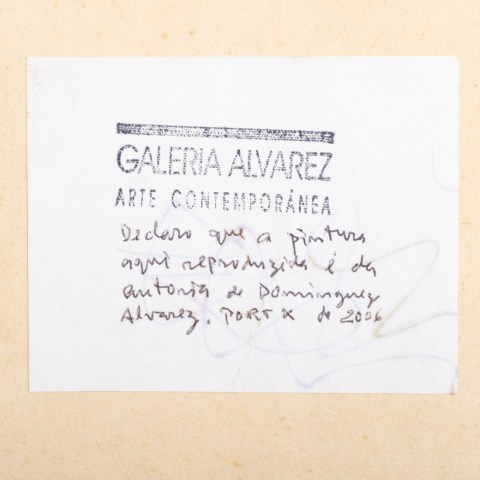 GALERIA ALVAREZ
ARTE CONTEMPORÁNEA
Declaro que a pintura
aqui reproduzida é da
autoria de Dominguez
Alvarez. PORT X de 2006